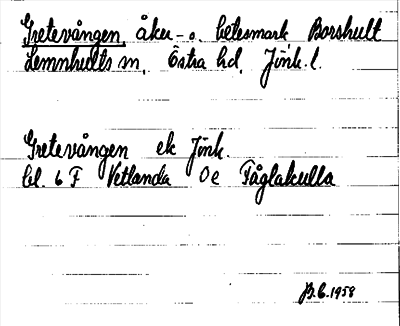 Gretevången, åker- o. betesmark Borshult
Lemnhults sn, Östra hd, Jönk. l.
Gretevången ek Jönk.
bl. 6 F Vetlanda 0e Fåglakulla
B.E. 1958